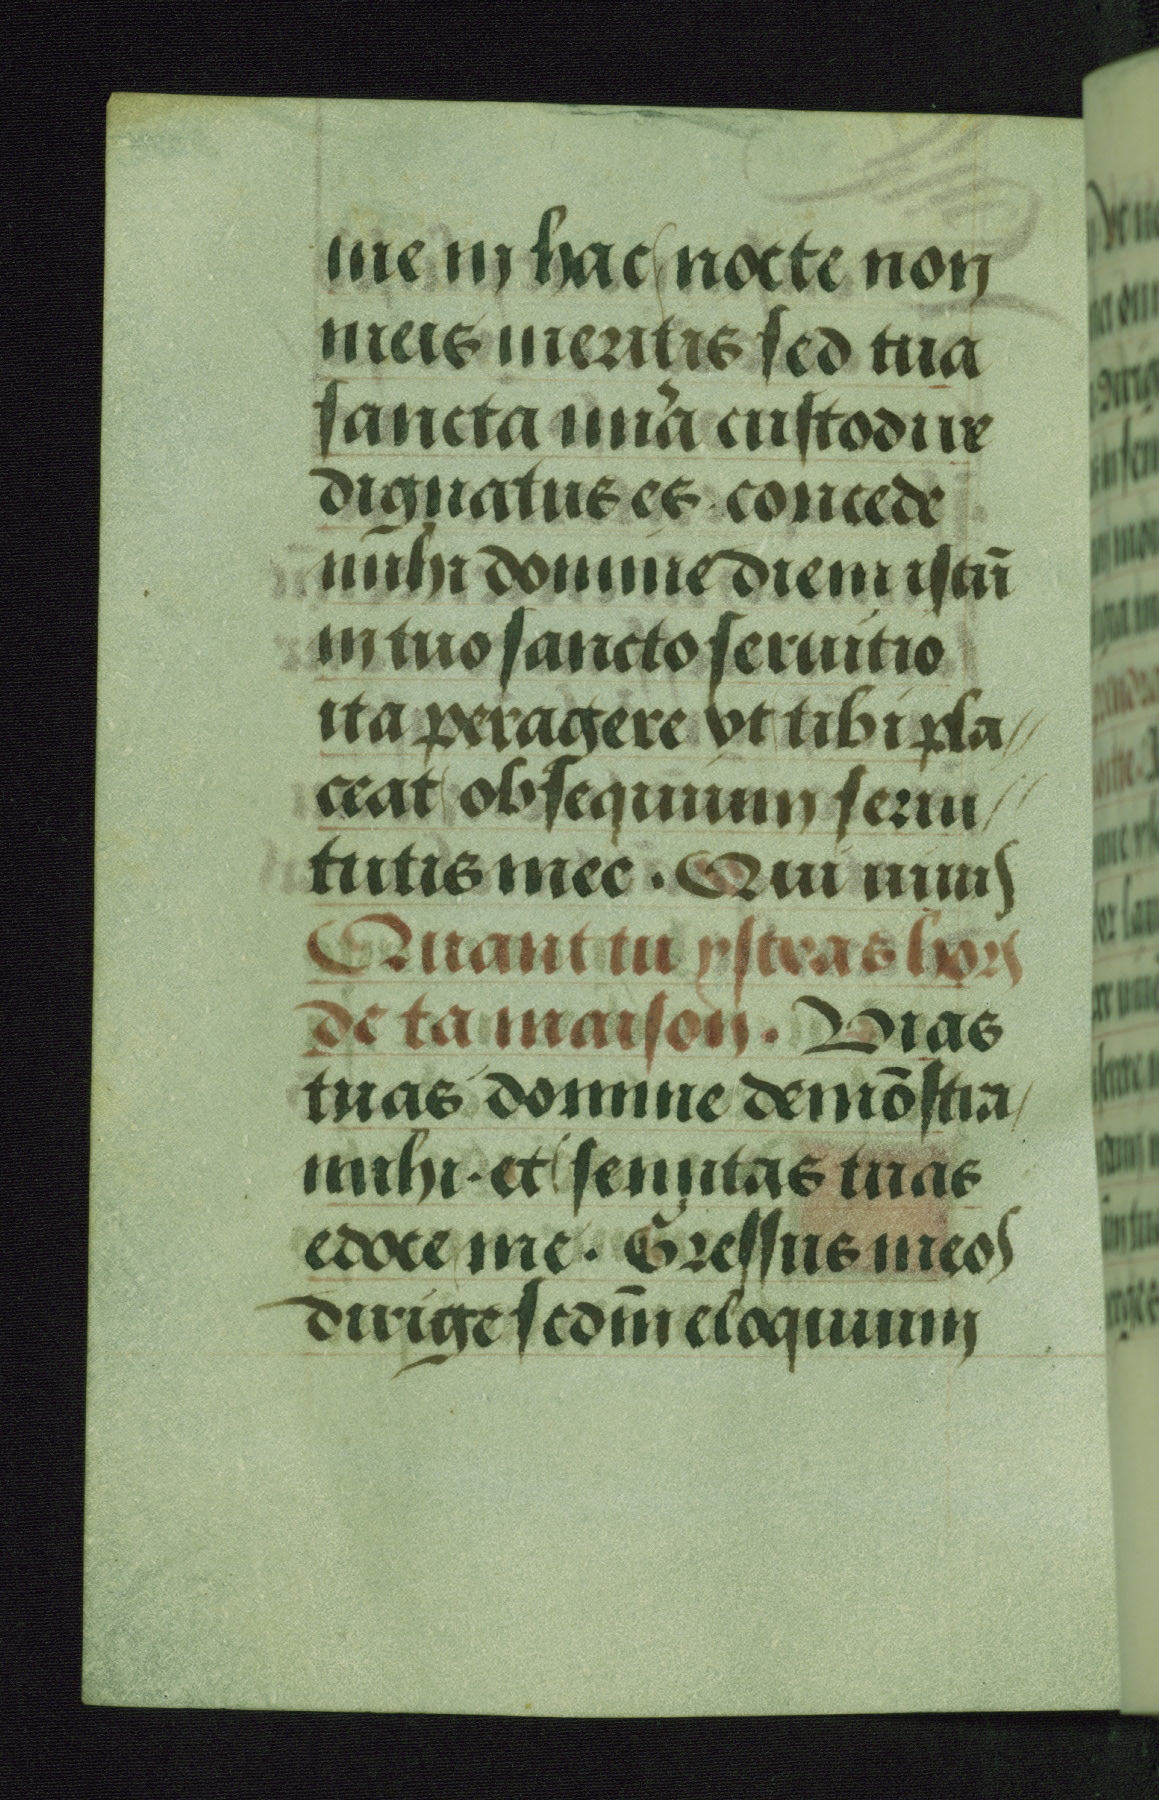 me in hac nocte non
meis meritis sed tua
sancta mīa custodire
dignatus es. concede
mīhi domine diem istū
in tuo sancto seruitio
ita peragere vt tibi pla//
ceat obsequium serui//
tutis mee. Qui viuis
Quant tu ystras hors
de ta maison. Vias
tuas domine demōstra/
mihi. et semitas tuas
edoce me. Gressus meos
dirige scdm̄ eloquium